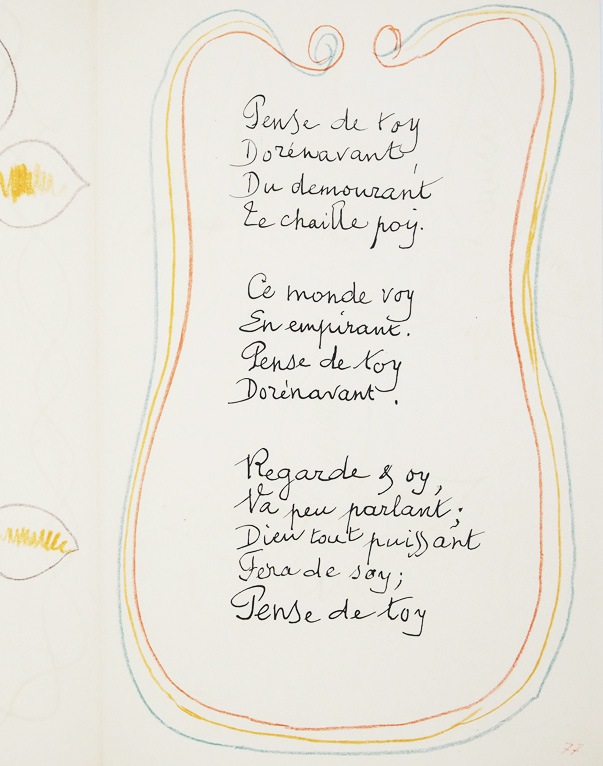 Pense de toy
Dorénavant,
Du demourant
Te chaille poy.
Ce monde voy
En empirant.
Pense de toy
Dorénavant.
Regarde & oy,
Va peu parlant;
Dieu tout puissant
Fera de soy;
Pense de toy
77